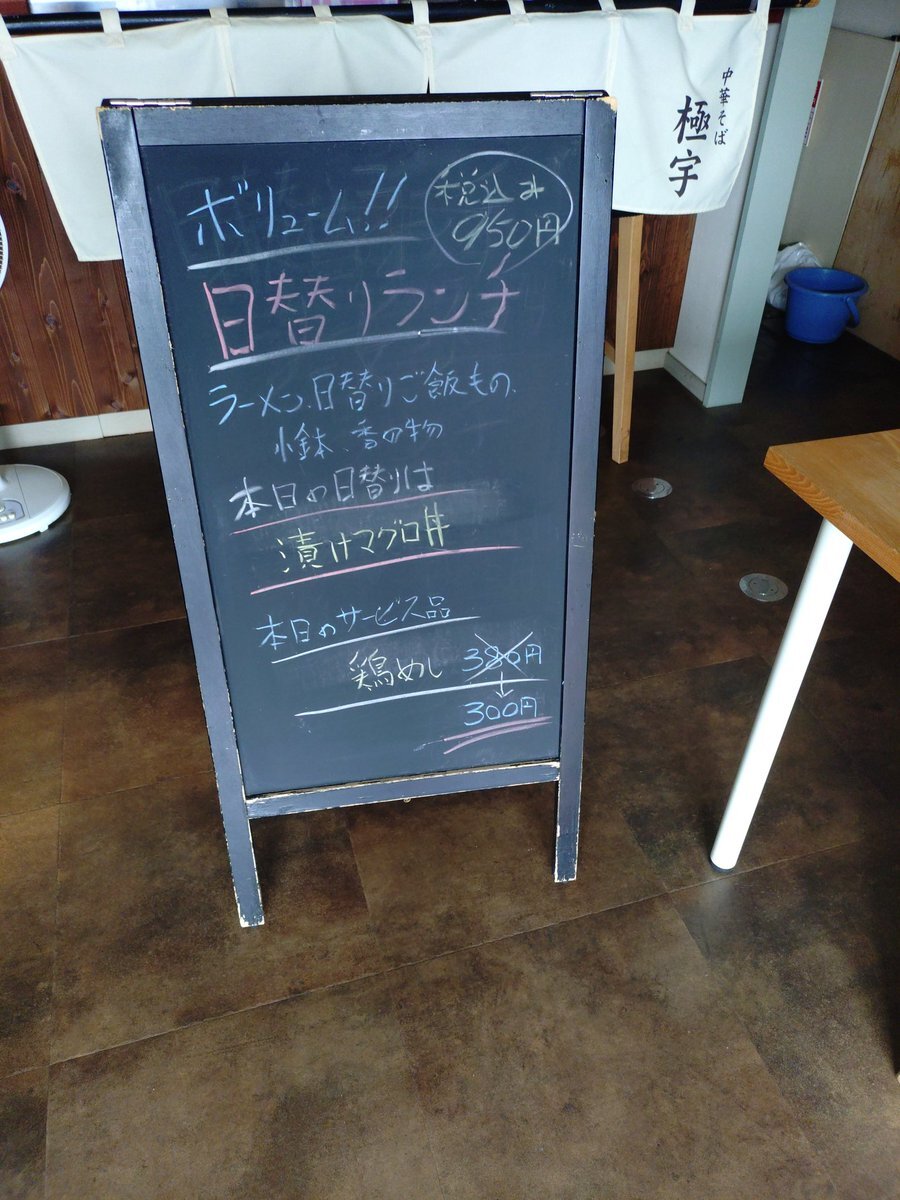 中華そば
極宇
ボリューム!!
税込み
950円
日替りランチ
ラーメン、日替りご飯もの、
小鉢、香の物
本日の日替りは
漬けマグロ丼
本日のサービス品
鶏めし 380円
↓
300円